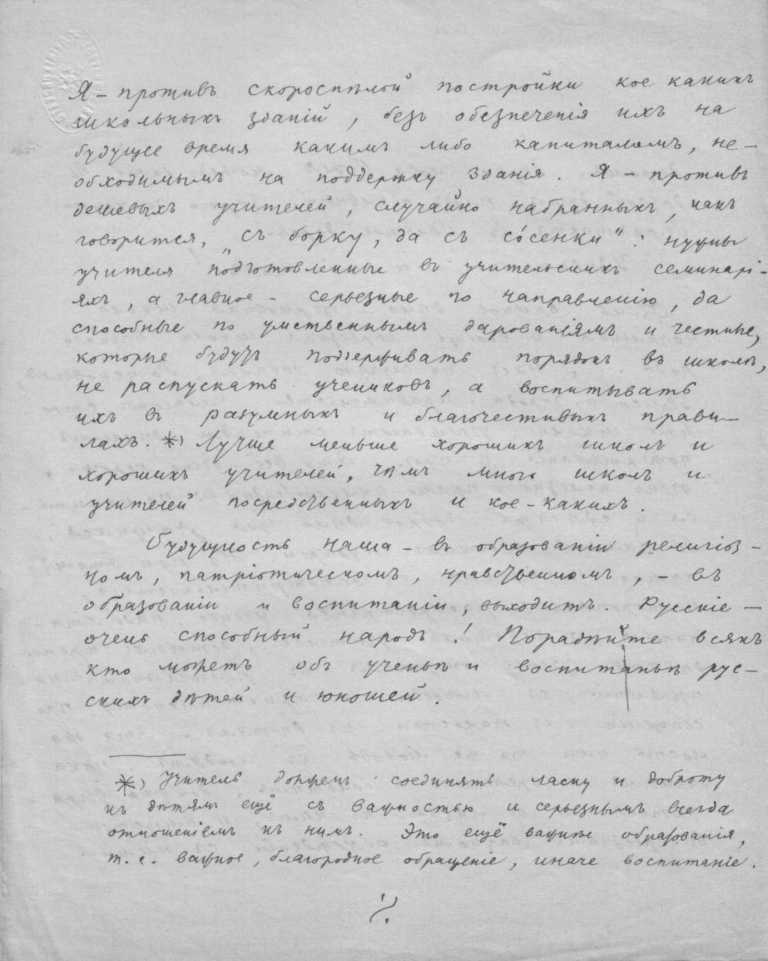 Я – противъ скороспѣлой постройки кое какихъ
школьныхъ зданій, безъ обезпеченія ихъ на
будущее время какимъ либо капиталомъ, не–
обходимымъ на поддержку зданія. Я – противъ
дешевыхъ учителей, случайно набранныхъ, какъ
говорится, „съ борку, да съ со́сенки“: нужны
учителя подготовленные въ учительскихъ семинарі–
яхъ, а главное – серьезные по направленію, да
способные по умственнымъ дарованіямъ и честные,
которые будутъ поддерживать порядокъ въ школѣ,
не распускать учениковъ, а воспитывать
ихъ въ разумныхъ и благочестивыхъ прави–
лахъ. *) Лучше меньше хорошихъ школъ и
хорошихъ учителей, чѣмъ много школъ и
учителей посредственныхъ и кое-какихъ.
Будущность наша – въ образованіи религіоз–
номъ, патріотическомъ, нравственномъ, – въ
образованіи и воспитаніи, выходитъ. Русскіе –
очень способный народъ! Порадѣйте всякъ
кто можетъ объ ученьѣ и воспитаньѣ рус–
скихъ дѣтей и юношей.
*) Учитель долженъ соединять ласку и доброту
къ дѣтямъ ещё съ важностью и серьезнымъ всегда
отношеніемъ къ нимъ. Это ещё важнѣе образованія,
т. е. важное, благородное обращеніе, иначе воспитаніе.